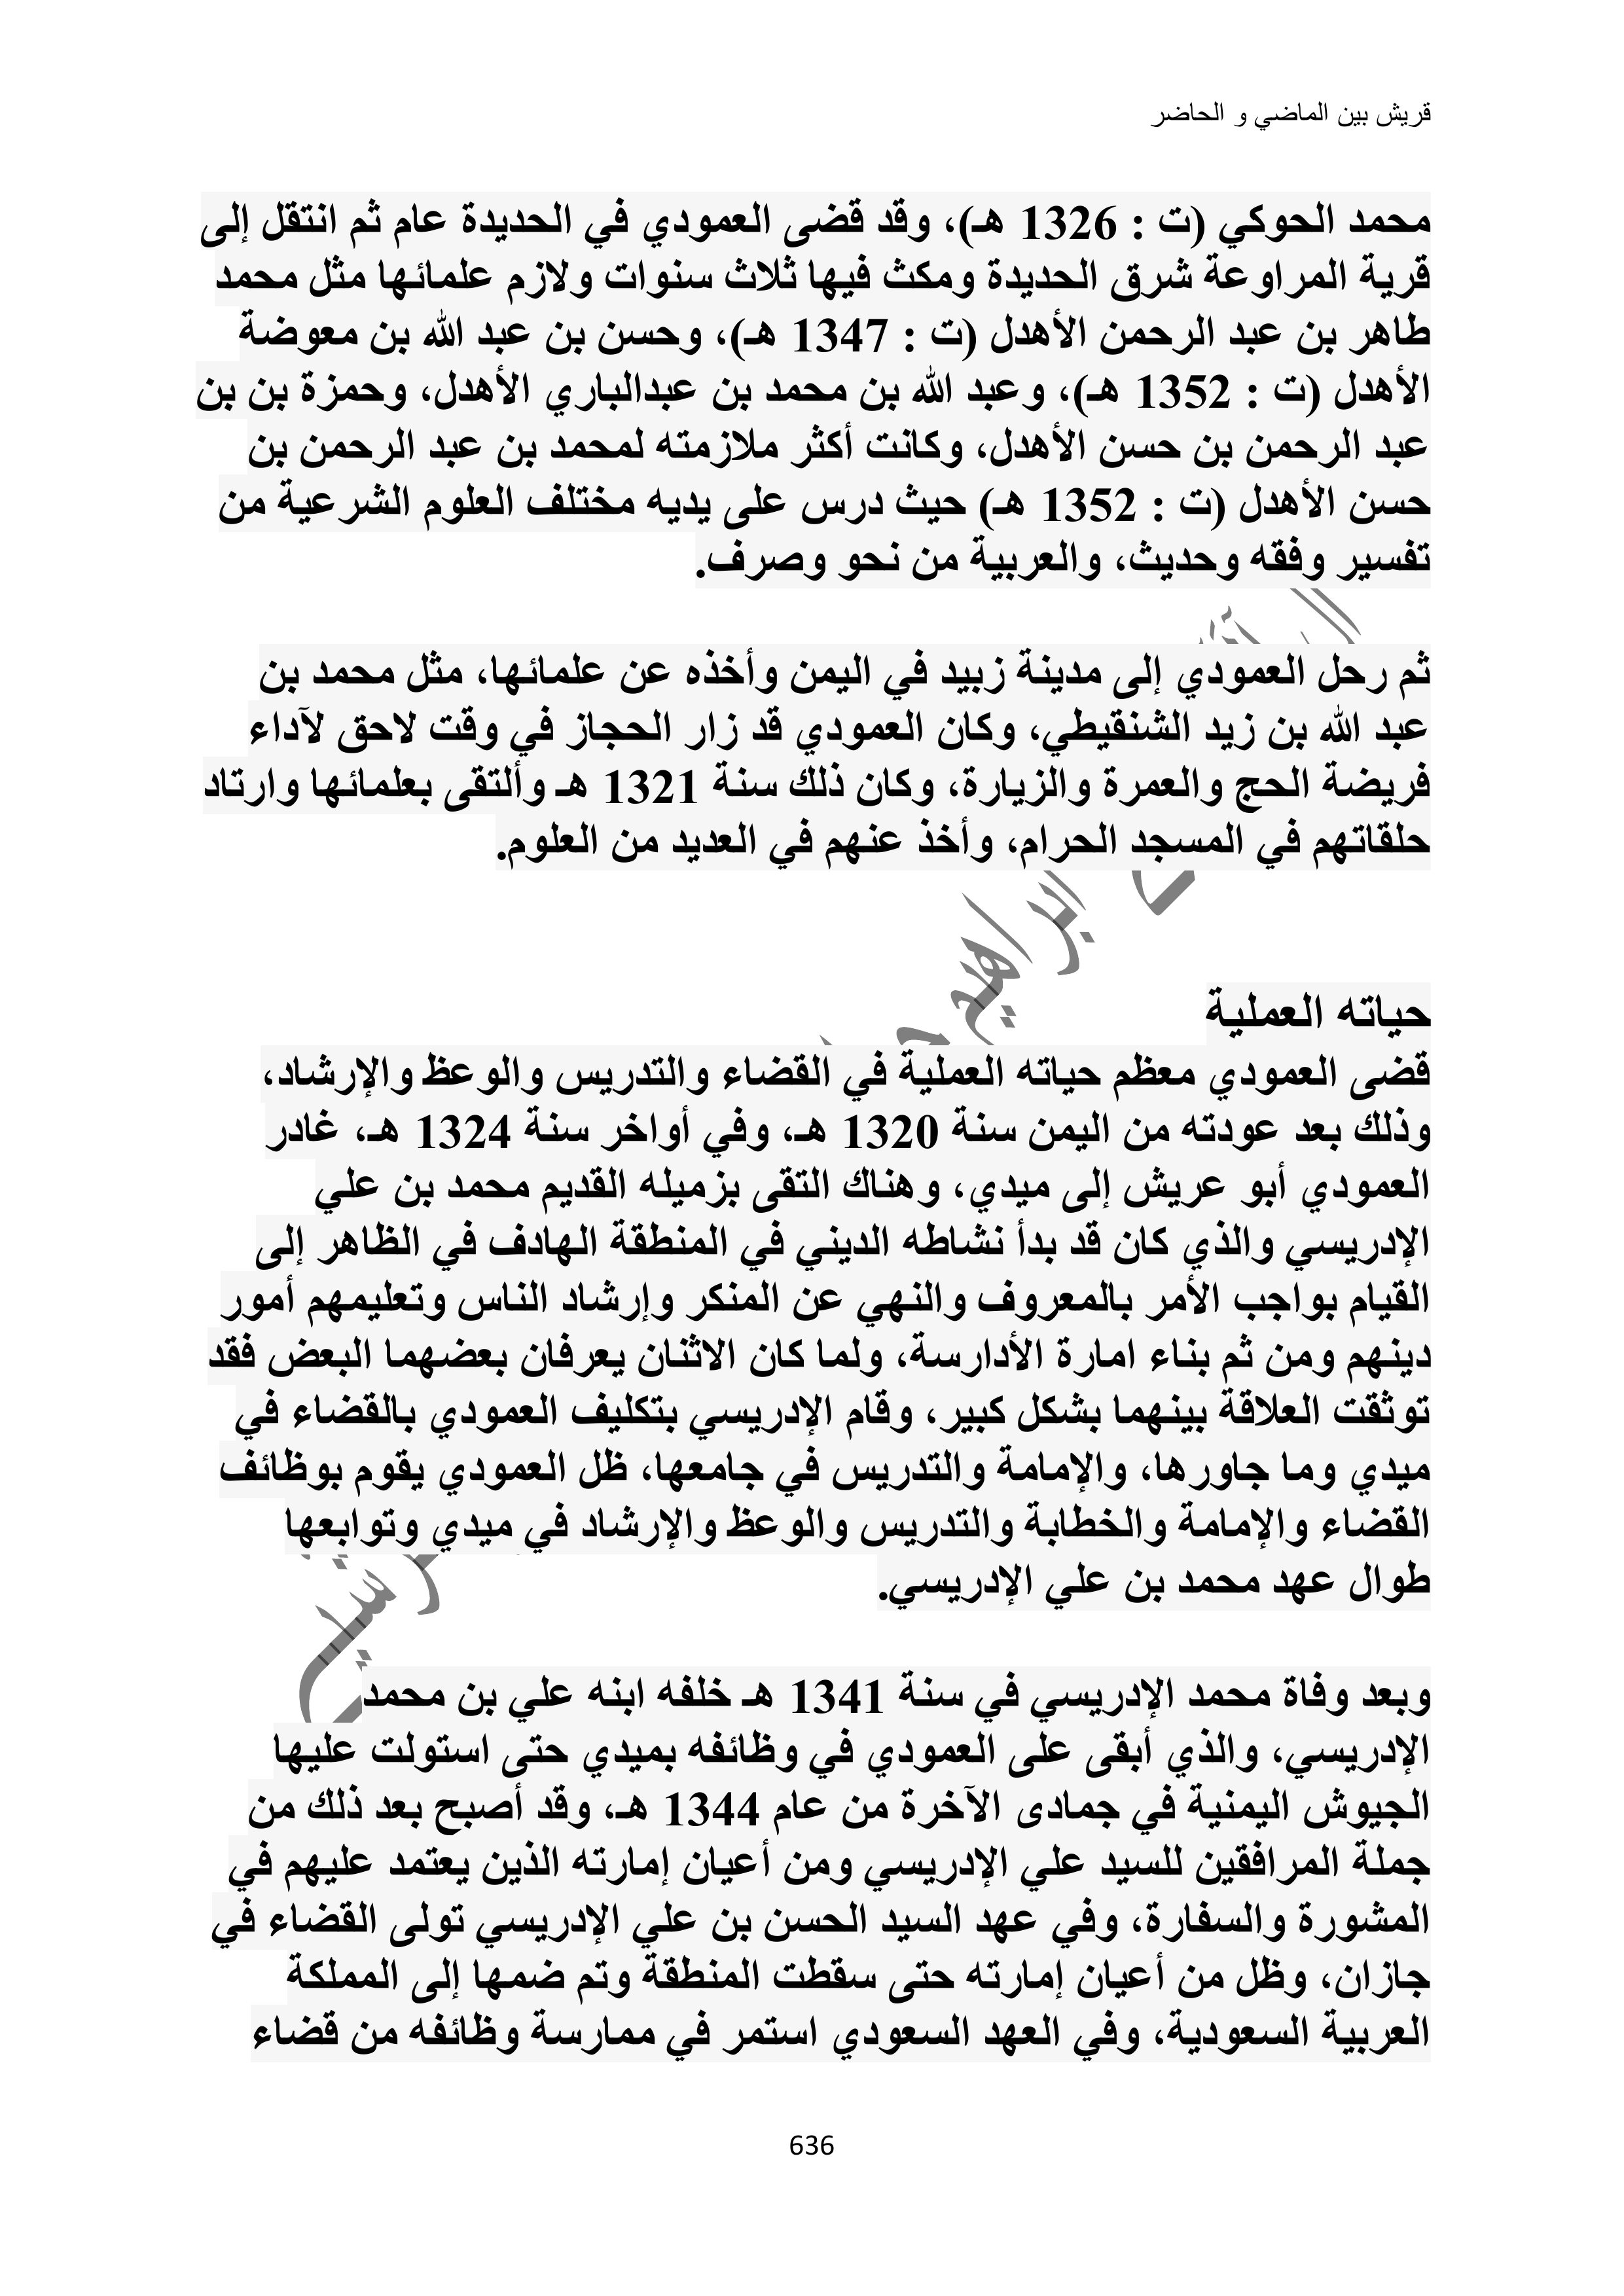 قريش بين الماضي و الحاضر
محمد الحوكي (ت : 1326 هـ)، وقد قضى العمودي في الحديدة عام ثم انتقل إلى
قرية المراوعة شرق الحديدة ومكث فيها ثلاث سنوات ولازم علمائها مثل محمد
طاهر بن عبد الرحمن الأهدل (ت : 1347 هـ)، وحسن بن عبد الله بن معوضة
الأهدل (ت : 1352 هـ)، وعبد الله بن محمد بن عبدالباري الأهدل، وحمزة بن بن
عبد الرحمن بن حسن الأهدل، وكانت أكثر ملازمته لمحمد بن عبد الرحمن بن
حسن الأهدل (ت : 1352 هـ) حيث درس على يديه مختلف العلوم الشرعية من
تفسير وفقه وحديث، والعربية من نحو وصرف.
ثم رحل العمودي إلى مدينة زبيد في اليمن وأخذه عن علمائها، مثل محمد بن
عبد الله بن زيد الشنقيطي، وكان العمودي قد زار الحجاز في وقت لاحق لآداء
فريضة الحج والعمرة والزيارة، وكان ذلك سنة 1321 هـ وألتقى بعلمائها وارتاد
حلقاتهم في المسجد الحرام، وأخذ عنهم في العديد من العلوم.
ابراهيم
حياته العملية
قضى العمودي معظم حياته العملية في القضاء والتدريس والوعظ والإرشاد،
وذلك بعد عودته من اليمن سنة 1320 هـ، وفي أواخر سنة 1324 هـ، غادر
العمودي أبو عريش إلى ميدي، وهناك التقى بزميله القديم محمد بن علي
الإدريسي والذي كان قد بدأ نشاطه الديني في المنطقة الهادف في الظاهر إلى
القيام بواجب الأمر بالمعروف والنهي عن المنكر وإرشاد الناس وتعليمهم أمور
دينهم ومن ثم بناء امارة الأدارسة، ولما كان الاثنان يعرفان بعضهما البعض فقد
توثقت العلاقة بينهما بشكل كبير، وقام الإدريسي بتكليف العمودي بالقضاء في
ميدي وما جاورها، والإمامة والتدريس في جامعها، ظل العمودي يقوم بوظائف
القضاء والإمامة والخطابة والتدريس والوعظ والإرشاد في ميدي وتوابعها
طوال عهد محمد بن علي الإدريسي.
وبعد وفاة محمد الإدريسي في سنة 1341 هـ خلفه ابنه علي بن محمد
الإدريسي، والذي أبقى على العمودي في وظائفه بميدي حتى استولت عليها
الجيوش اليمنية في جمادى الآخرة من عام 1344 هـ، وقد أصبح بعد ذلك من
جملة المرافقين للسيد علي الإدريسي ومن أعيان إمارته الذين يعتمد عليهم في
المشورة والسفارة، وفي عهد السيد الحسن بن علي الإدريسي تولى القضاء في
جازان، وظل من أعيان إمارته حتى سقطت المنطقة وتم ضمها إلى المملكة
العربية السعودية، وفي العهد السعودي استمر في ممارسة وظائفه من قضاء
636